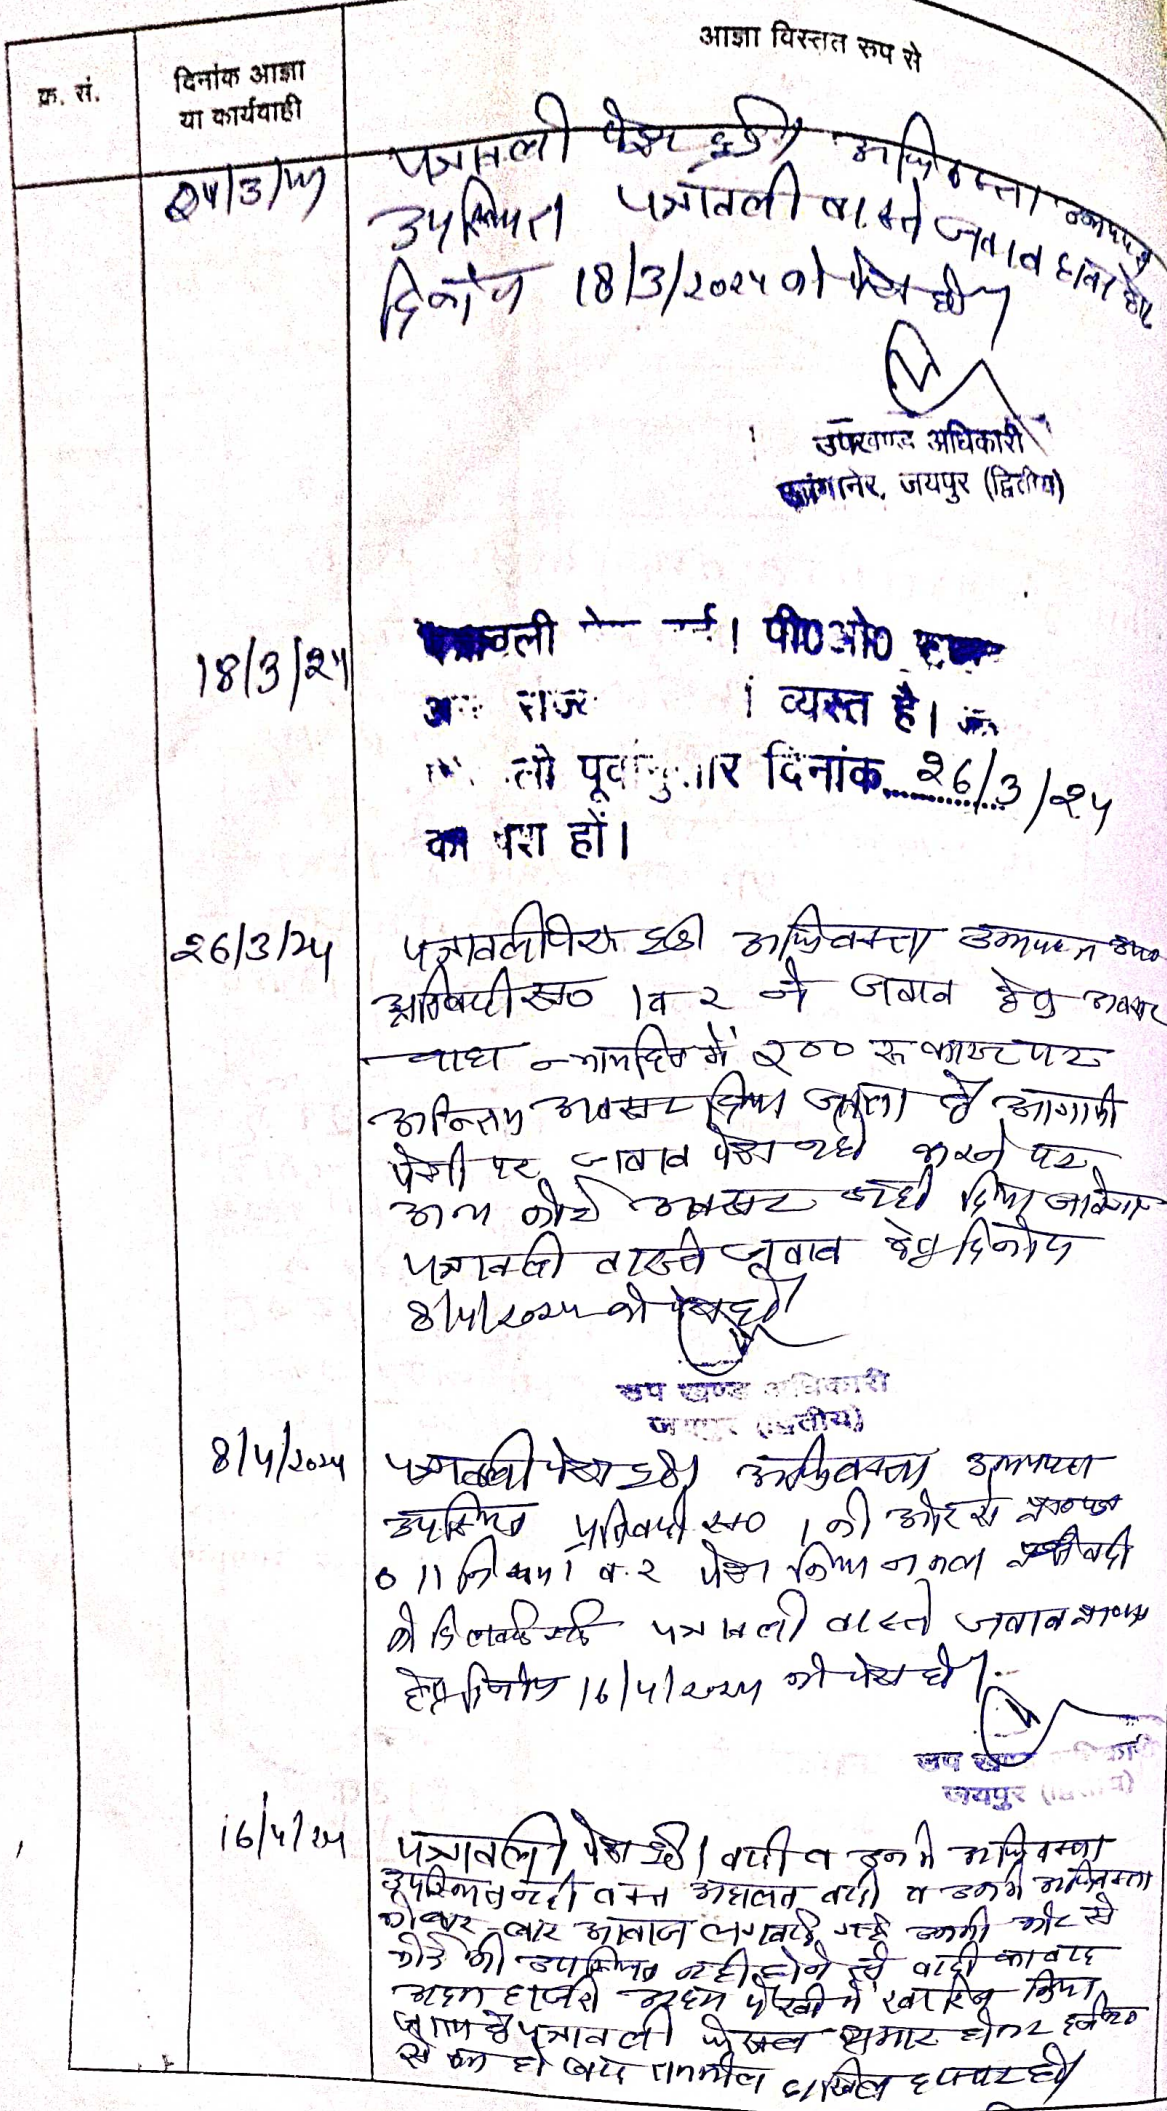 आज्ञा विस्तृत रूप से
क्र. सं.
दिनांक आज्ञा
या कार्यवाही
पत्रावली पेश हुई। अधिवक्ता
उपस्थित पत्रावली वास्ते जवाब
दिनांक 18/3/2025 को पेश हो।
उपखण्ड अधिकारी
सांगानेर, जयपुर (द्वितीय)
18/3/25
पत्रावली पी0ओ0
व्यस्त है।
पूर्वानुसार दिनांक 26/3/25
को पेश हों।
26/3/25
पत्रावली पेश हुई अधिवक्ता उभयपक्ष उप०
प्रतिवादी स० 1 व 2 ने जवाब हेतु अवसर
चाहा न्यायहित में 200 रू कास्ट पर
अन्तिम अवसर दिया जाता है आगामी
पेशी पर जवाब पेश नही करने पर
अन्य कोई अवसर नही दिया जावेगा
पत्रावली वास्ते जवाब हेतु दिनांक
8/4/2025 को पेश हो।
उप खण्ड अधिकारी
जयपुर (द्वितीय)
8/4/2025
पत्रावली पेश हुई। अधिवक्ता उभयपक्ष
उपस्थित प्रतिवादी स० 1 की ओर से
011 नियम 1 व 2 पेश किया नकल
को दिलवाई गई पत्रावली वास्ते जवाब
हेतु दिनांक 16/4/2025 को पेश हो।
उप खण्ड अधिकारी
जयपुर (द्वितीय)
16/4/25
पत्रावली पेश हुई। वादी व उनके अधिवक्ता
उपस्थित नही वक्त अदालत वादी व उनके अधिवक्ता
को बार बार आवाज लगवाई गई उनकी ओर से
कोई भी उपस्थित नही होने से वादी का वाद
अदम हाजरी अदम पैरवी में खारिज किया
जाता है पत्रावली फैसल शुमार होकर
से कम हो बाद तकमील दाखिल दफ्तर हो।